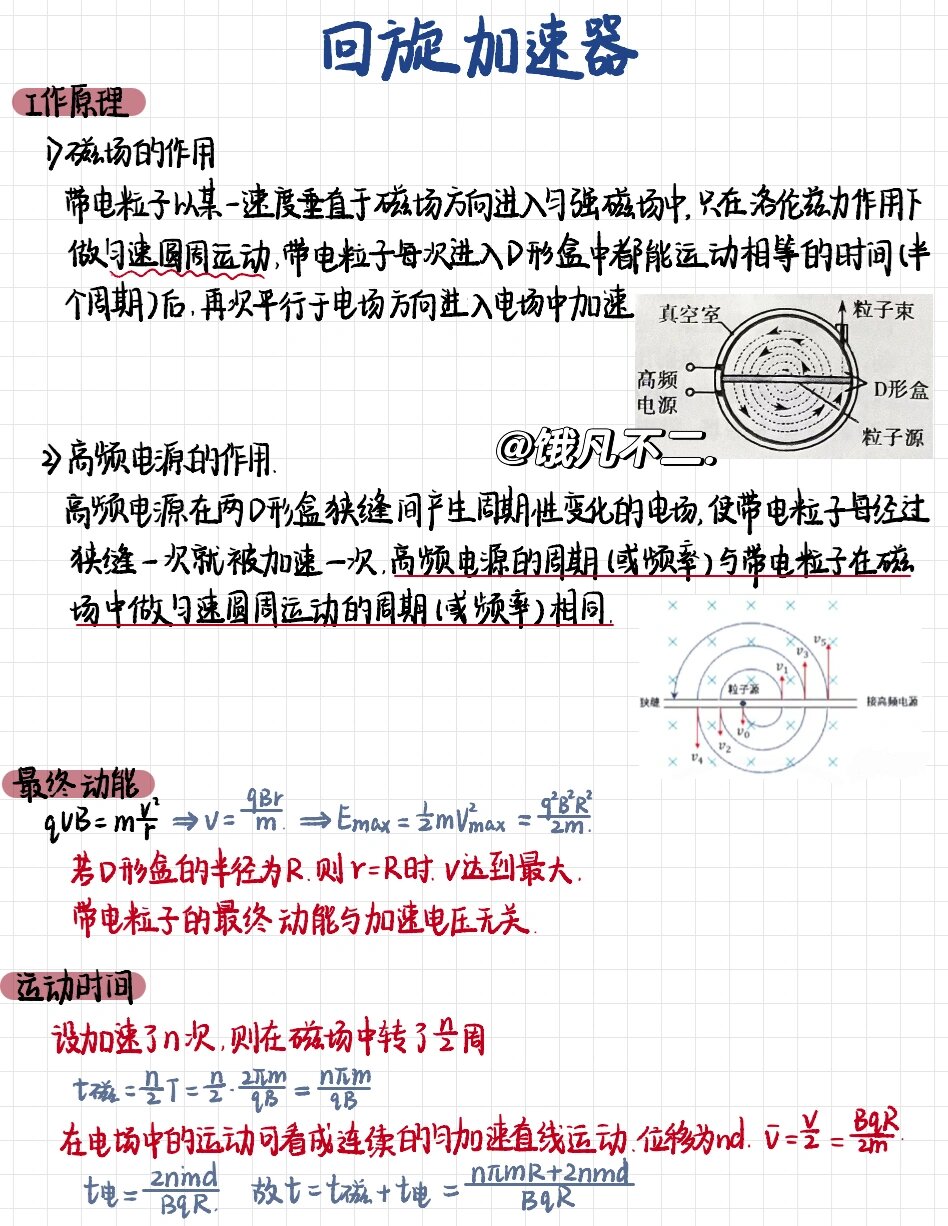 回旋加速器
工作原理
1)磁场的作用
带电粒子以某一速度垂直于磁场方向进入匀强磁场中,只在洛伦兹力作用下
做匀速圆周运动,带电粒子每次进入D形盒中都能运动相等的时间(半
个周期)后,再次平行于电场方向进入电场中加速
真空室
粒子束
高频
电源
D形盒
粒子源
@饿凡不二.
2)高频电源的作用.
高频电源在两D形盒狭缝间产生周期性变化的电场,使带电粒子每经过
狭缝一次就被加速一次.高频电源的周期(或频率)与带电粒子在磁
场中做匀速圆周运动的周期(或频率)相同.
v₅
v₃
v₁
粒子源
狭缝
接高频电源
v₀
v₂
v₄
最终动能
qvB=mv²/r ⇒v=qBr/m. ⇒Emax=½mv²max=q²B²R²/2m.
若D形盒的半径为R.则r=R时.v达到最大.
带电粒子的最终动能与加速电压无关.
运动时间
设加速了n次,则在磁场中转了n/2周
t磁=n/2T=n/2·2πm/qB=nπm/qB
在电场中的运动可看成连续的匀加速直线运动.位移为nd. v̄=v/2=BqR/2m.
t电=2nmd/BqR. 故t=t磁+t电=nπmR+2nmd/BqR